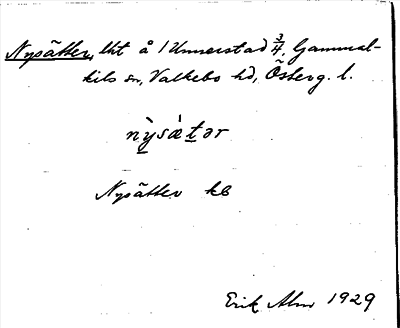 Nysätter, lht å 1 Unnerstad 3/4, Gammal-
kils sn, Valkebo hd, Österg. l.
nỳsætər
Nysätter kb
Erik Alm 1929